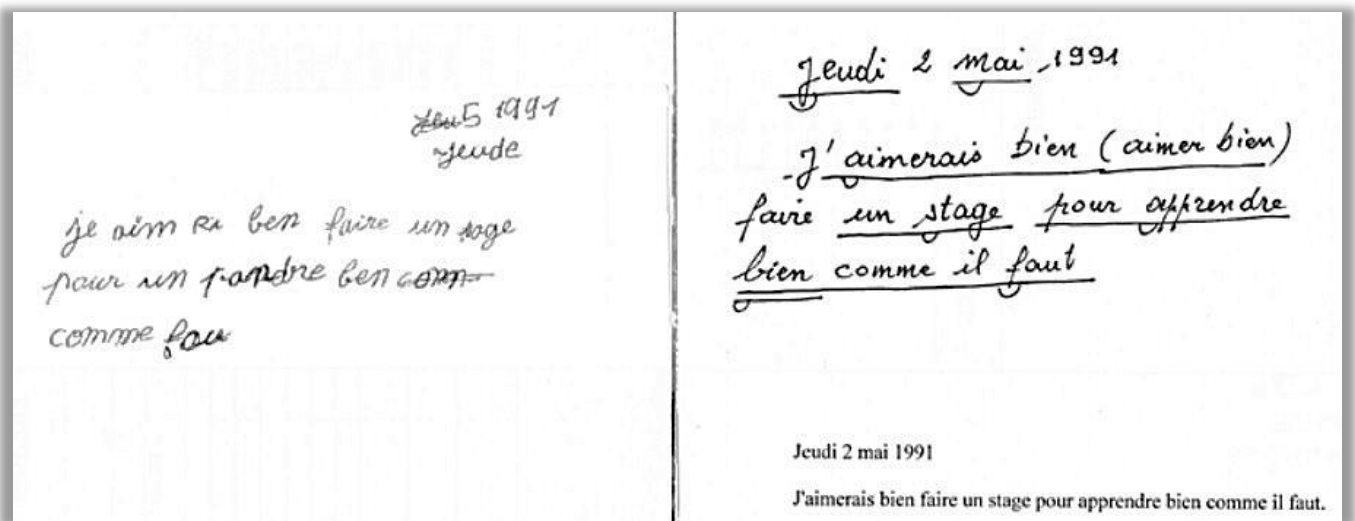 5 1991
jeude
je aim Ri ben faire un sage
pour un pandre ben com
comme fau
Jeudi 2 mai 1991
J'aimerais bien (aimer bien)
faire un stage pour apprendre
bien comme il faut
Jeudi 2 mai 1991
J'aimerais bien faire un stage pour apprendre bien comme il faut.